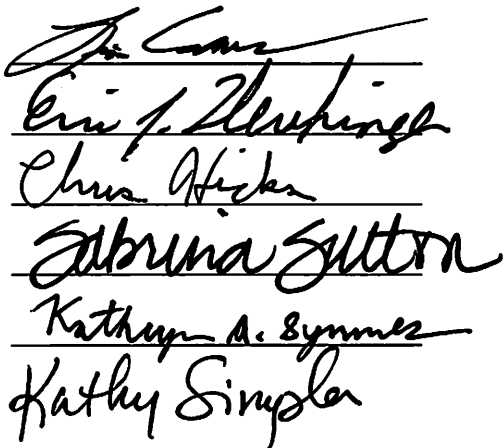 Eric J.
Chris Hicks
Sabrina Sutton
Kathryn A. Symmes
Kathy Simpler